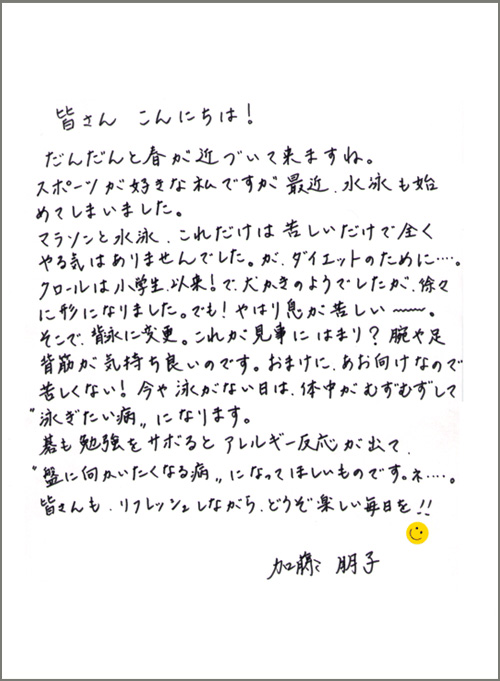 皆さん こんにちは!
だんだんと春が近づいて来ますね。
スポーツが好きな私ですが最近、水泳も始
めてしまいました。
マラソンと水泳、これだけは苦しいだけで全く
やる気はありませんでした。が、ダイエットのために‥‥。
クロールは小学生以来!で、犬かきのようでしたが、徐々
に形になりました。でも!やはり息が苦しい〜〜。
そこで、背泳に変更。これが見事にはまり?腕や足
背筋が気持ち良いのです。おまけに、あお向けなので
苦しくない!今や泳がない日は、体中がむずむずして
“泳ぎたい病„になります。
碁も勉強をサボるとアレルギー反応が出て、
“盤に向かいたくなる病„になってほしいものです。ネ‥‥。
皆さんも、リフレッシュしながら、どうぞ楽しい毎日を!!
加藤 朋子